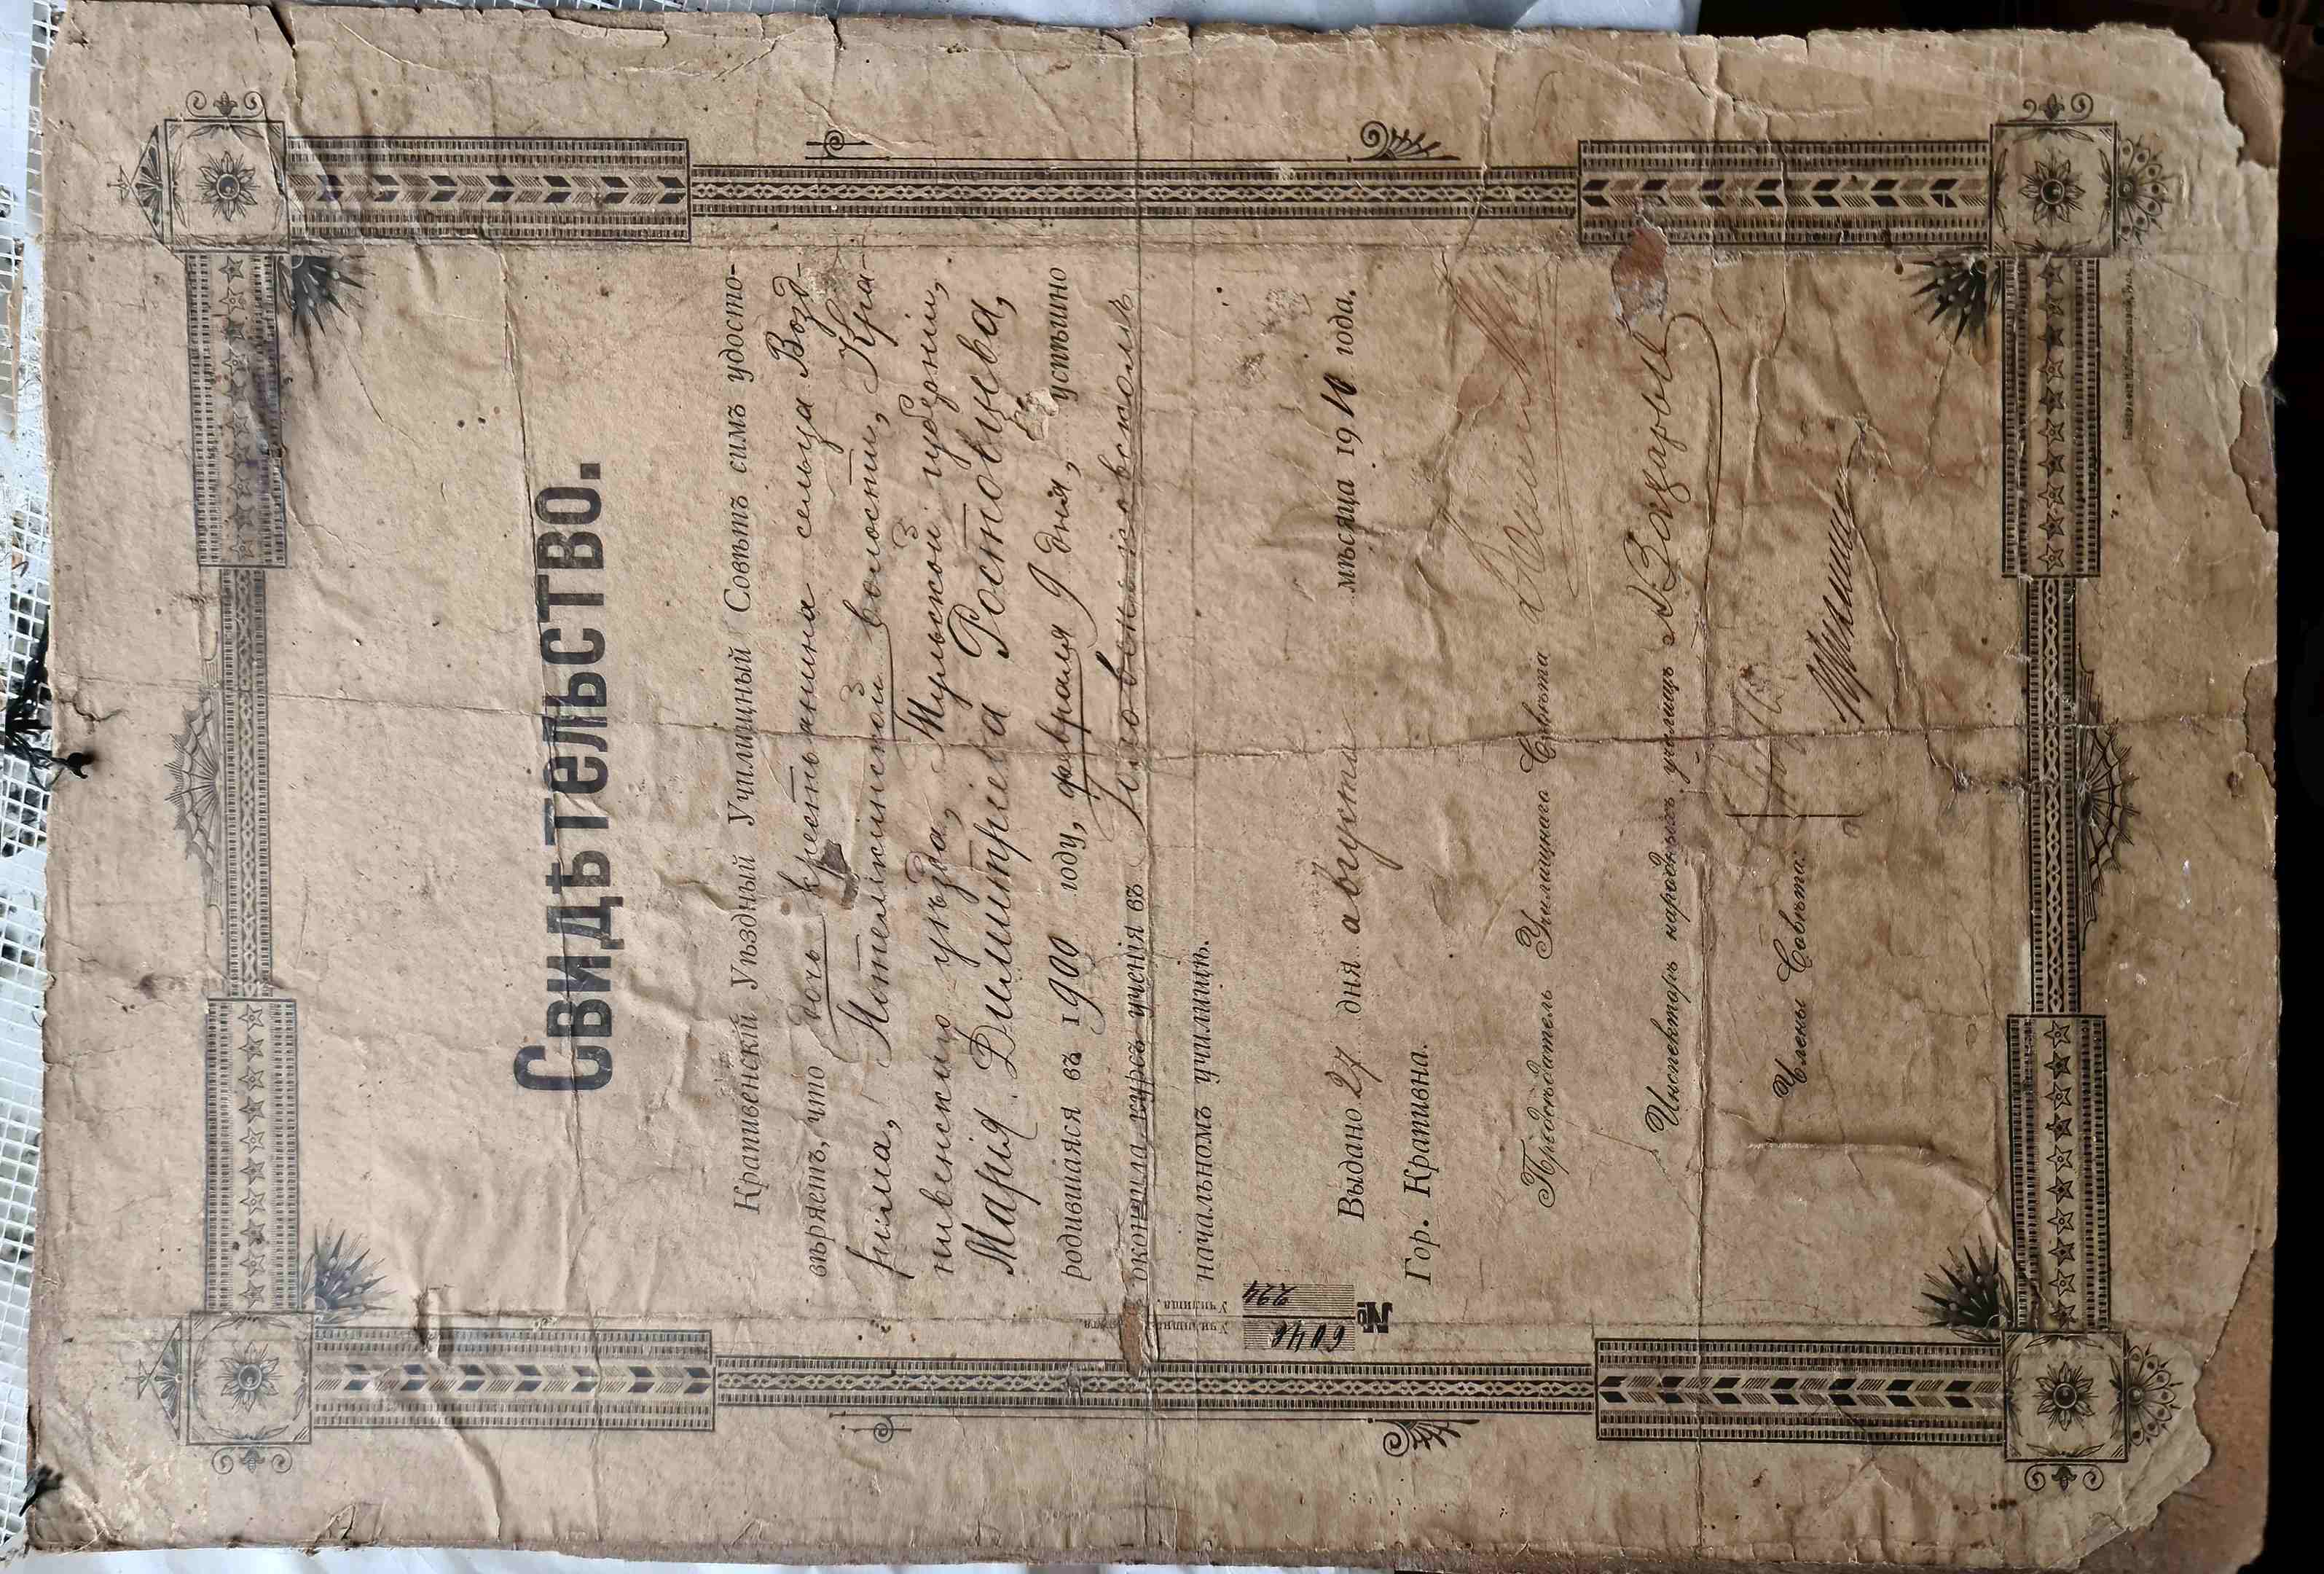 Свидѣтельство.
Крапивенскій Уѣздный Училищный Совѣтъ симъ удосто-
вѣряетъ, что дочь крестьянина сельца Возд-
рема, Ятемкинской волости, Кра-
пивенскаго уѣзда, Тульской губерніи,
Марія Димитріева Ростовцева,
родившаяся въ 1900 году, февраля 9 дня, успѣшно
окончила курсъ ученія въ Головеньковскомъ
начальномъ училищѣ.
Выдано 27 дня августа мѣсяца 1911 года.
Гор. Крапивна.
№
Училища.
6040
294
Предсѣдатель Училищнаго Совѣта
Инспекторъ народныхъ училищъ
Члены Совѣта: